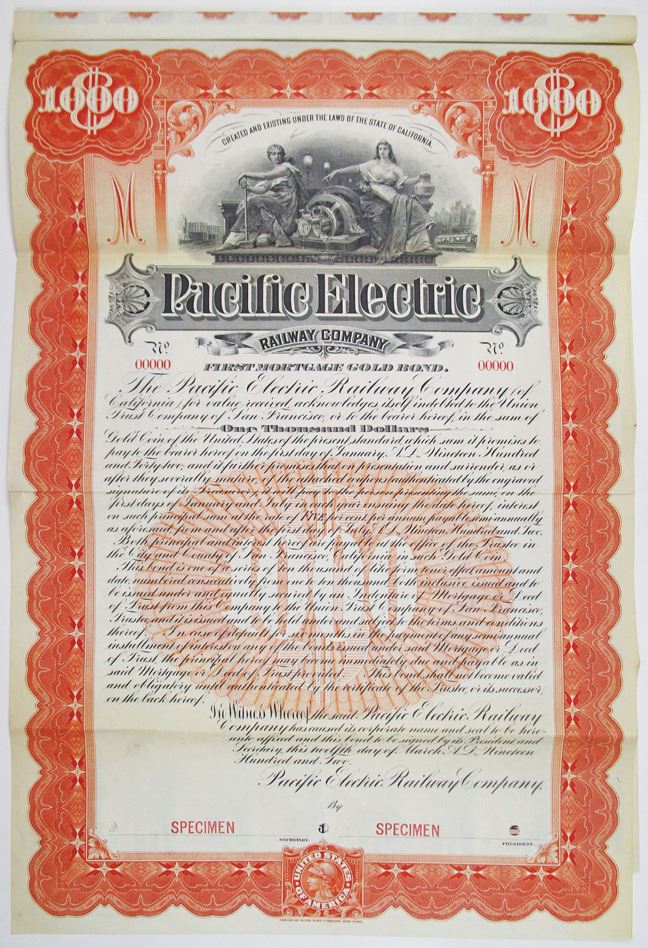 1000 1000
CREATED AND EXISTING UNDER THE LAWS OF THE STATE OF CALIFORNIA
M M
Pacific Electric
RAILWAY COMPANY
No. No.
00000 00000
FIRST MORTGAGE GOLD BOND.
The Pacific Electric Railway Company (of
California) for value received, acknowledges itself indebted to the Union
Trust Company of San Francisco, or to the bearer hereof, in the sum of
One Thousand Dollars
Gold Coin of the United States of the present standard, which sum it promises to
pay to the bearer hereof on the first day of January, A.D. Nineteen Hundred
and Forty-two; and it further promises that on presentation and surrender, as or
after they severally mature, of the attached coupons authenticated by the engraved
signature of its Treasurer, it will pay to the person presenting the same, on the
first days of January and July in each year ensuing the date hereof, interest
on such principal sum at the rate of FIVE per cent. per annum, payable semi-annually
as aforesaid from and after the first day of July, A.D. Nineteen Hundred and Two.
Both principal and interest hereof are payable at the office of the Trustee in
the City and County of San Francisco, California, in such Gold Coin.
This bond is one of a series of ten thousand bonds of like tenor, effect, amount and
date, numbered consecutively from one to ten thousand, both inclusive, issued and to
be issued under and equally secured by an Indenture of Mortgage or Deed
of Trust from this Company to the Union Trust Company of San Francisco,
Trustee, and is issued and held subject to the terms and conditions
thereof. In case of default in the payment of any semi-annual
installment of interest on any of the bonds issued under said Mortgage or Deed
of Trust, the principal hereof may become immediately due and payable as in
said Mortgage or Deed of Trust provided. This bond shall become valid
and obligatory when authenticated by the certificate of the Trustee, or its successor,
on the back hereof.
In Witness Whereof, the said Pacific Electric Railway
Company has caused its corporate name and seal to be here-
unto affixed and this bond to be signed by its President and
Secretary, this twelfth day of March, A.D. Nineteen
Hundred and Two.
Pacific Electric Railway Company.
By
SPECIMEN SPECIMEN
SECRETARY. PRESIDENT.
UNITED STATES
OF AMERICA